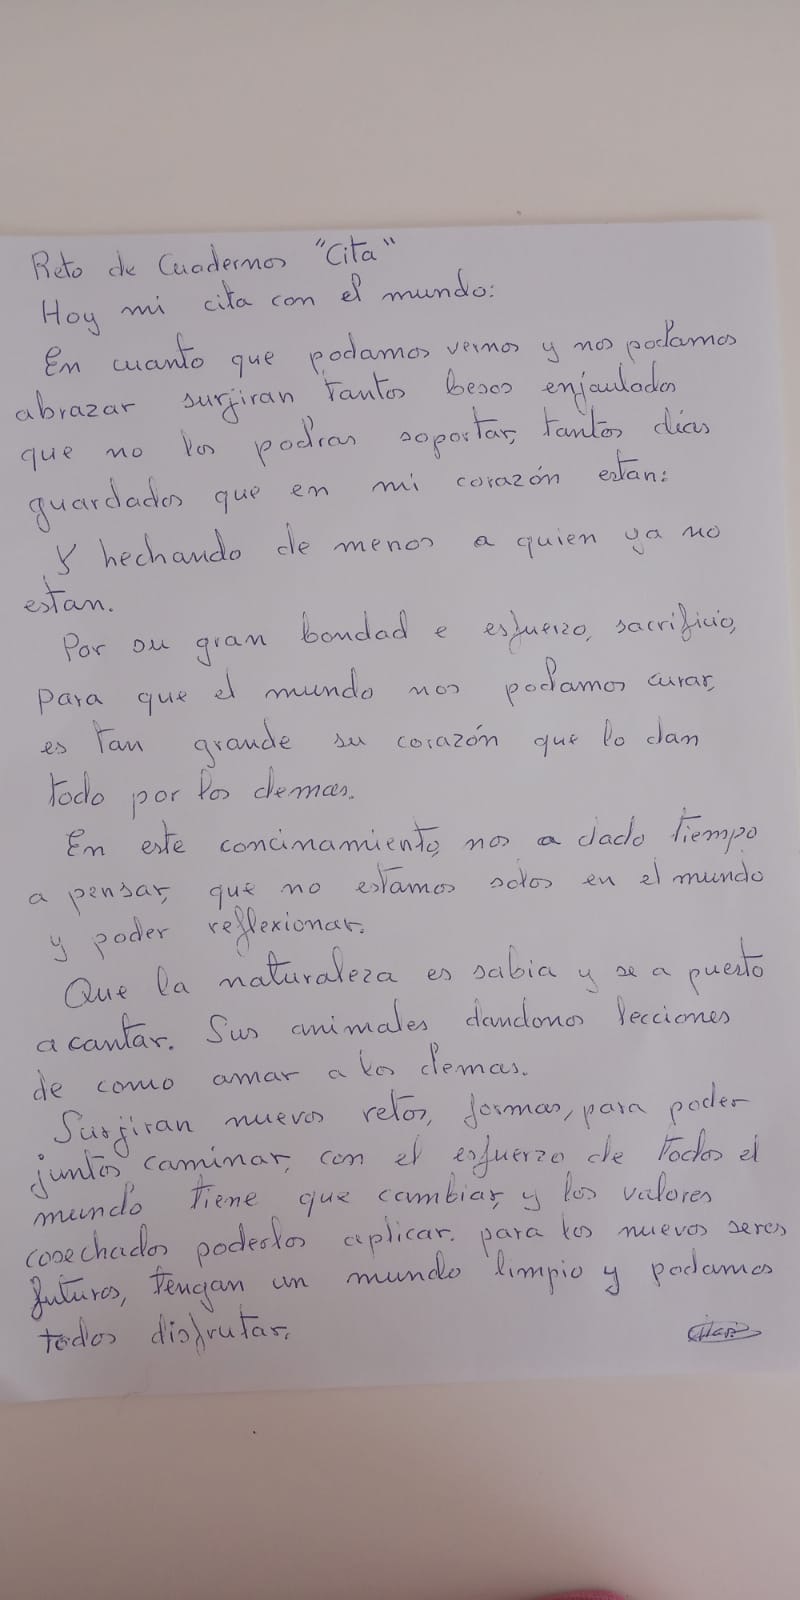 Reto de Cuadernos "Cita"
Hoy mi cita con el mundo:
En cuanto que podamos vernos y nos podamos
abrazar surjiran tantos besos enjaulados
que no los podras soportar, tantos dias
guardados que en mi corazón estan:
Y hechando de menos a quien ya no
estan.
Por su gran bondad e esfuerzo, sacrificio,
para que el mundo nos podamos curar,
es tan grande su corazón que lo dan
todo por los demas.
En este concinamiento, nos a dado tiempo
a pensar, que no estamos solos en el mundo
y poder reflexionar.
Que la naturaleza es sabia y se a puesto
a cantar. Sus animales dandonos lecciones
de como amar a los demas.
Surjiran nuevos retos, formas, para poder
juntos caminar, con el esfuerzo de todos el
mundo tiene que cambiar, y los valores
cosechados poderlos aplicar. para los nuevos seres
futuros, tengan un mundo limpio y podamos
todos disfrutar.